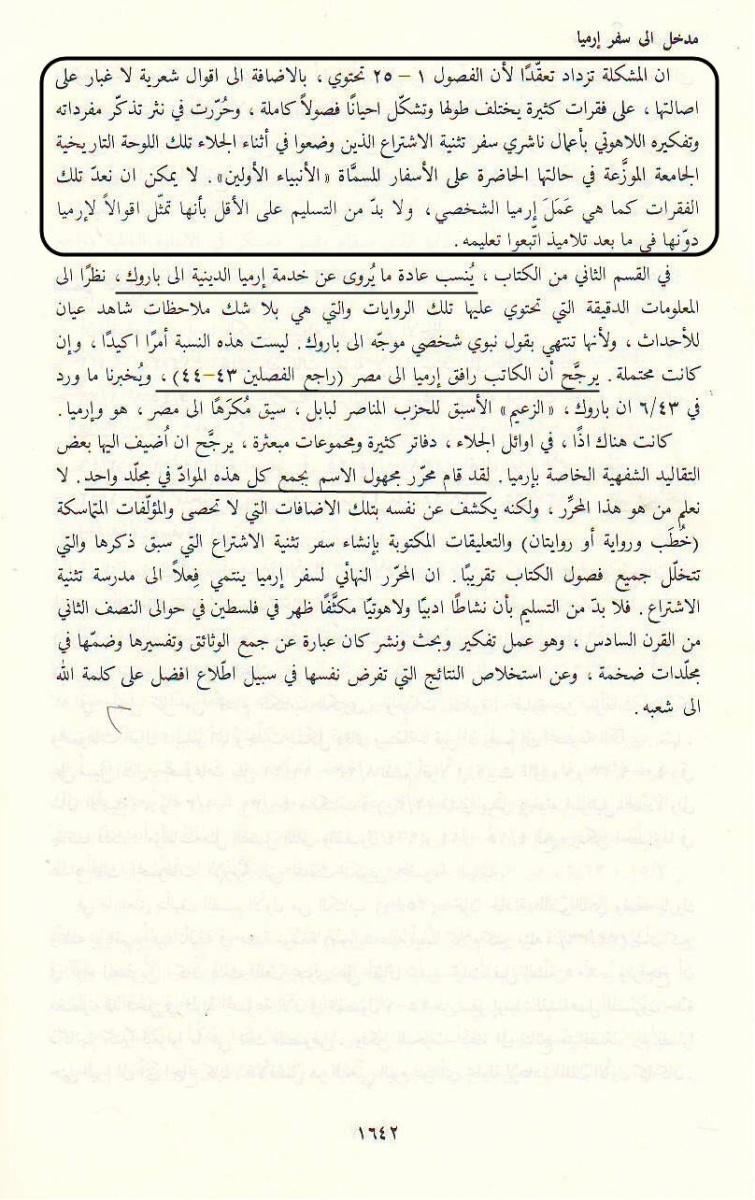 مدخل الى سفر إرميا
ان المشكلة تزداد تعقّدًا لأن الفصول ١ – ٢٥ تحتوي ، بالاضافة الى اقوال شعرية لا غبار على
اصالتها ، على فقرات كثيرة يختلف طولها وتشكّل احيانًا فصولًا كاملة ، وحُرّرت في نثر تذكّر مفرداته
وتفكيره اللاهوتي بأعمال ناشري سفر تثنية الاشتراع الذين وضعوا في أثناء الجلاء تلك اللوحة التاريخية
الجامعة الموزَّعة في حالتها الحاضرة على الأسفار المسمَّاة «الأنبياء الأولين». لا يمكن ان نعدّ تلك
الفقرات كما هي عَمَلَ إرميا الشخصي ، ولا بدّ من التسليم على الأقل بأنها تمثّل اقوالًا لإرميا
دوّنها في ما بعد تلاميذ اتّبعوا تعليمه .
في القسم الثاني من الكتاب ، يُنسب عادة ما يُروى عن خدمة إرميا الدينية الى باروك ، نظرًا الى
المعلومات الدقيقة التي تحتوي عليها تلك الروايات والتي هي بلا شك ملاحظات شاهد عيان
للأحداث ، ولأنها تنتهي بقول نبوي شخصي موجّه الى باروك . ليست هذه النسبة أمرًا اكيدًا ، وإن
كانت محتملة . يرجَّح أن الكاتب رافق إرميا الى مصر (راجع الفصلين ٤٣–٤٤) ، ويُخبرنا ما ورد
في ٦/٤٣ ان باروك ، «الزعيم» الأسبق للحزب المناصر لبابل ، سيق مُكرَهًا الى مصر ، هو وإرميا .
كانت هناك اذًا ، في اوائل الجلاء ، دفاتر كثيرة ومجموعات مبعثرة ، يرجّح ان أضيف اليها بعض
التقاليد الشفهية الخاصة بإرميا . لقد قام محرّر مجهول الاسم بجمع كل هذه الموادّ في مجلّد واحد . لا
نعلم من هو هذا المحرِّر ، ولكنه يكشف عن نفسه بتلك الاضافات التي لا تحصى والمؤلّفات المتماسكة
(خُطَب ورواية أو روايتان) والتعليقات المكتوبة بإنشاء سفر تثنية الاشتراع التي سبق ذكرها والتي
تتخلّل جميع فصول الكتاب تقريبًا . ان المحرّر النهائي لسفر إرميا ينتمي فِعلًا الى مدرسة تثنية
الاشتراع . فلا بدّ من التسليم بأن نشاطًا ادبيًا ولاهوتيًا مكثَّفًا ظهر في فلسطين في حوالى النصف الثاني
من القرن السادس ، وهو عمل تفكير وبحث ونشر كان عبارة عن جمع الوثائق وتفسيرها وضمّها في
مجلّدات ضخمة ، وعن استخلاص النتائج التي تفرض نفسها في سبيل اطّلاع افضل على كلمة الله
الى شعبه .
١٦٤٢